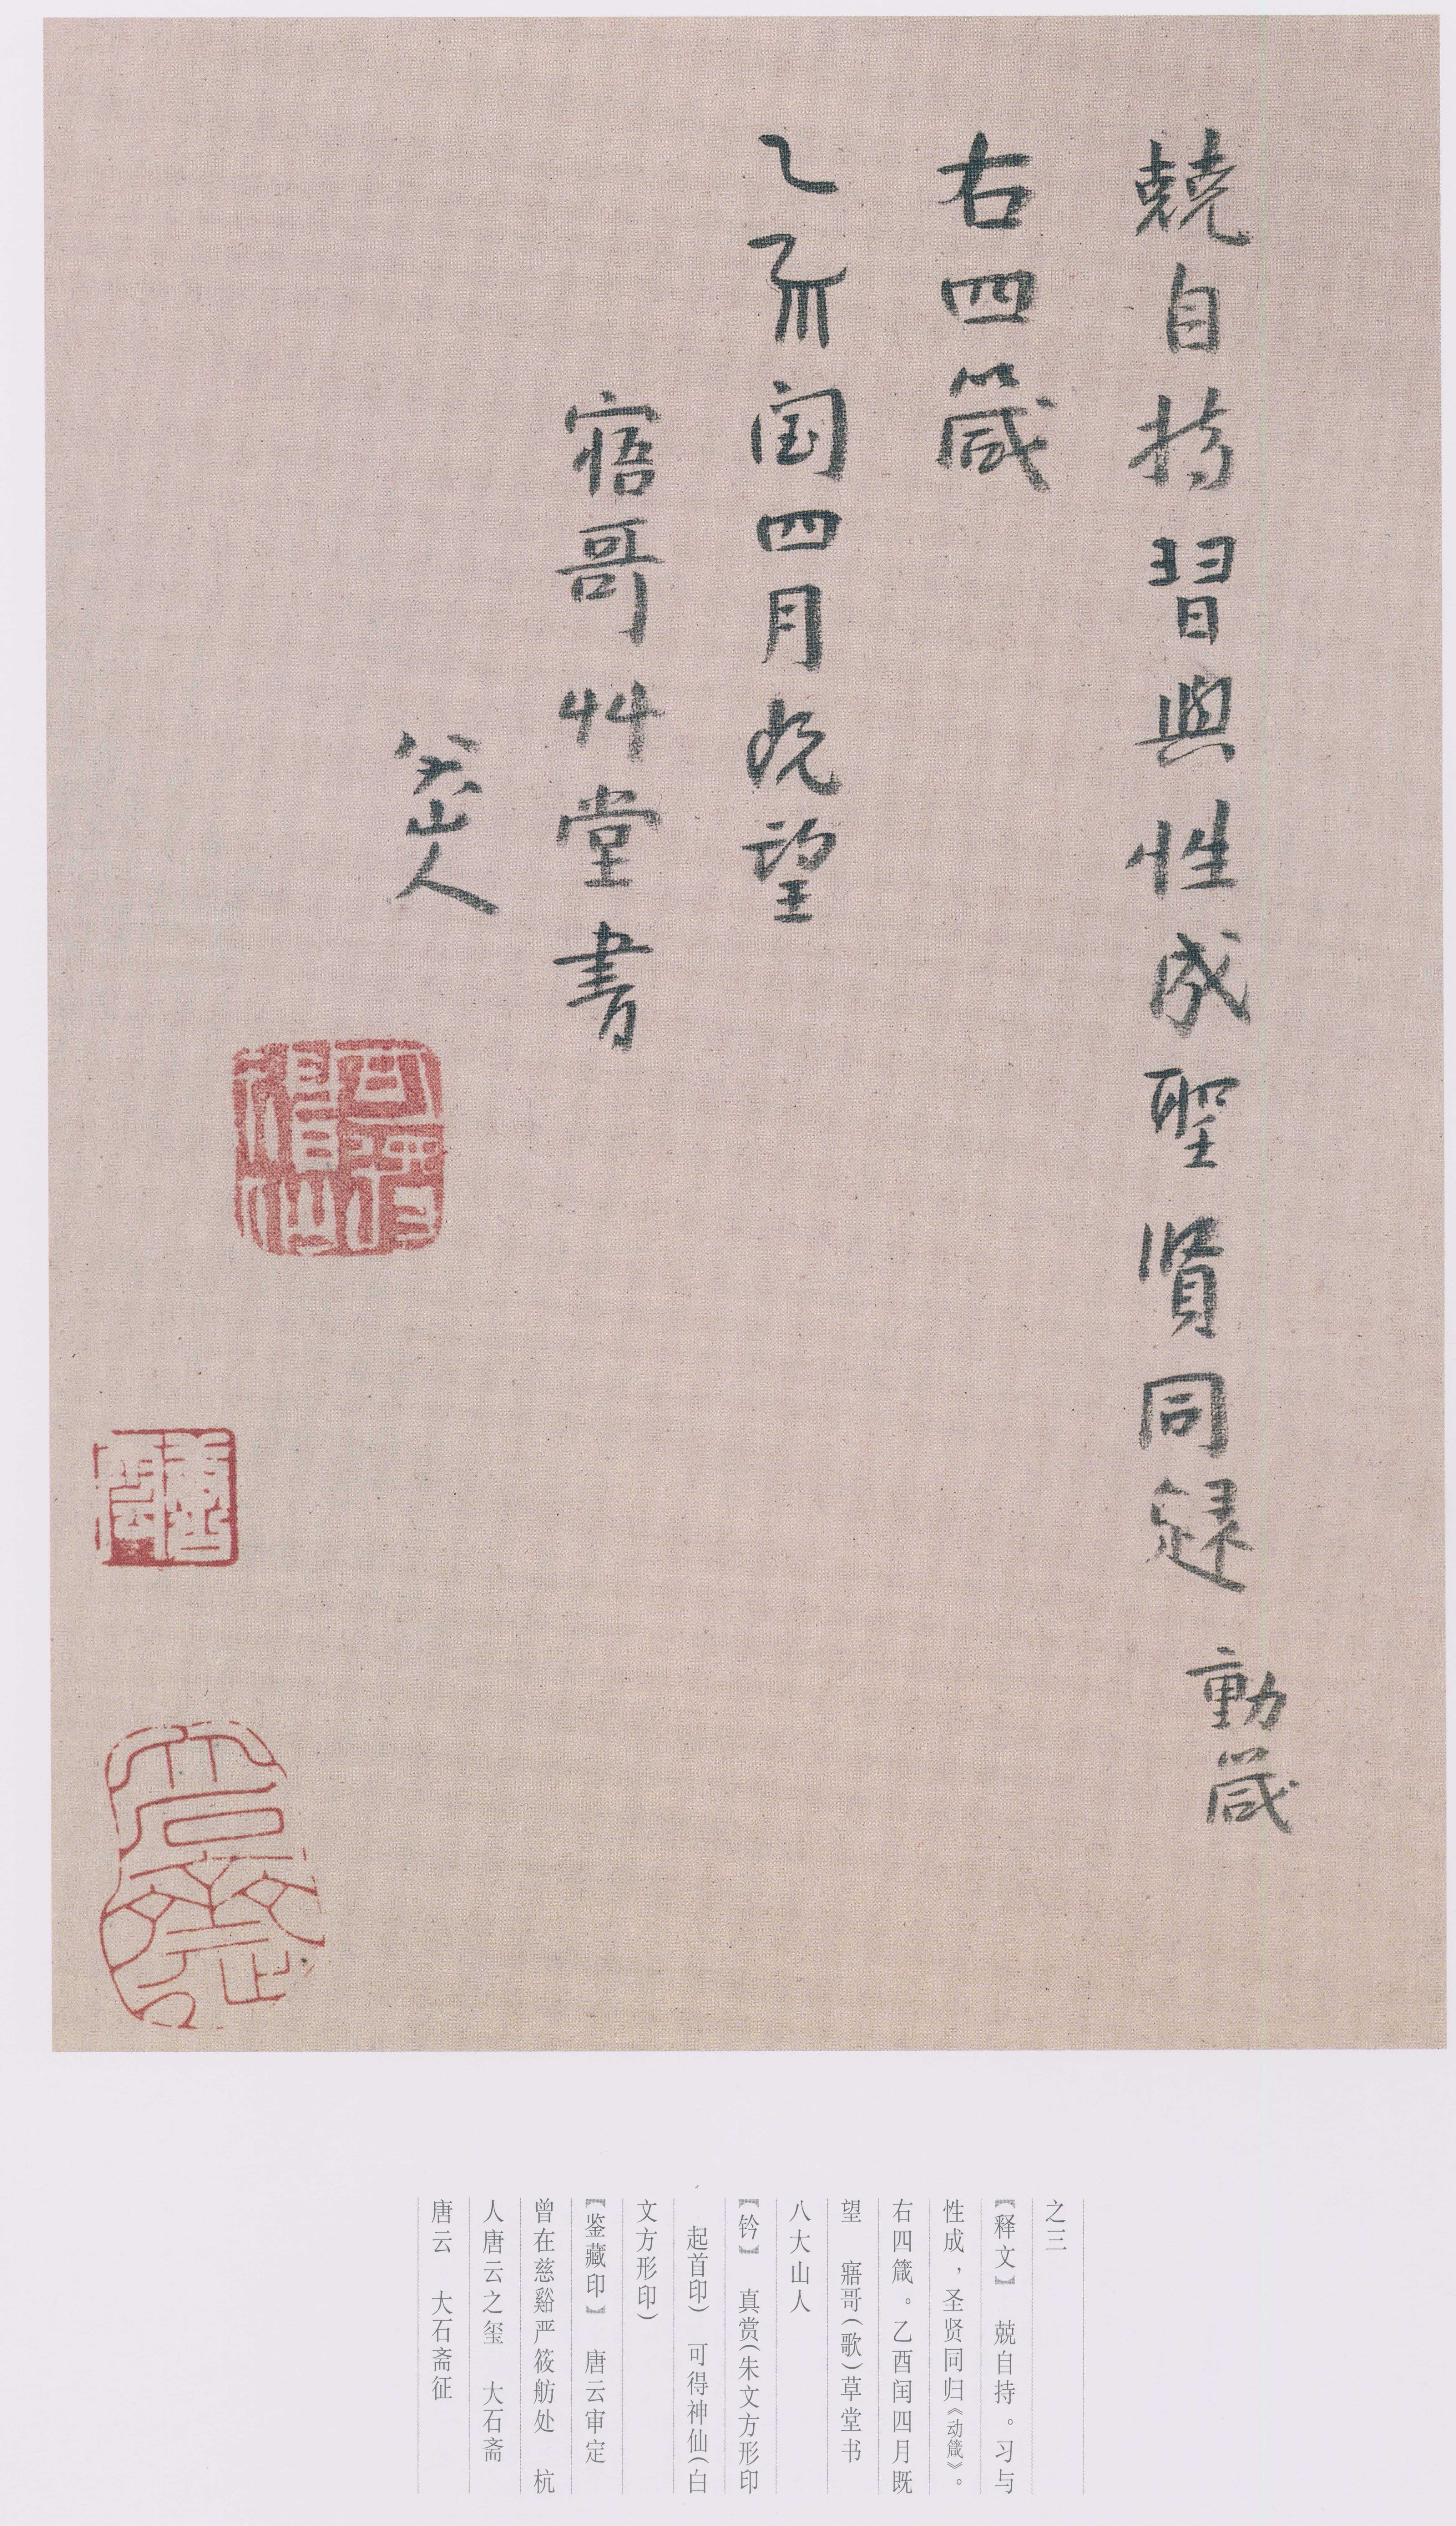 兢自持習與性成聖賢同歸 動箴
右四箴
乙酉闰四月既望
寤哥艸堂書
八大山人
可得神仙
大石斋
之三
【释文】 兢自持。习与
性成，圣贤同归《动箴》。
右四箴。乙酉闰四月既
望 寤哥（歌）草堂书
八大山人
【钤】 真赏（朱文方形印
起首印） 可得神仙（白
文方形印）
【鉴藏印】 唐云审定
曾在慈谿严筱舫处 杭
人唐云之玺 大石斋
唐云 大石斋征